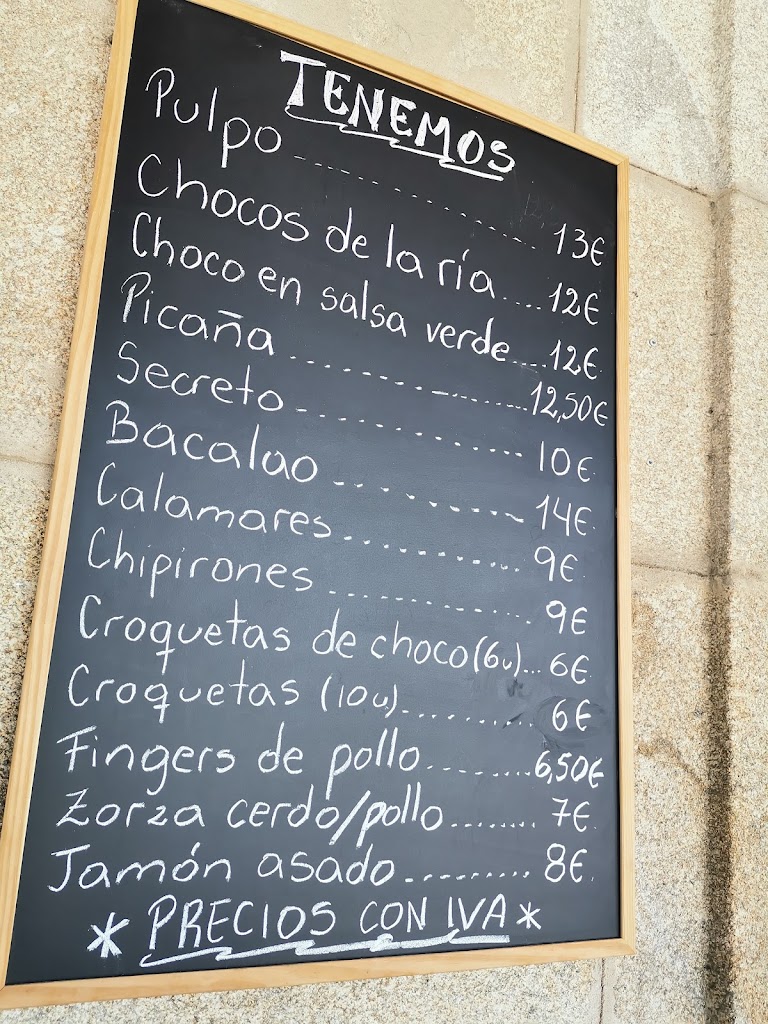 TENEMOS
Pulpo ............ 13€
Chocos de la ría .... 12€
Choco en salsa verde .... 12€
Picaña ............ 12,50€
Secreto ............ 10€
Bacalao ............ 14€
Calamares ............ 9€
Chipirones ............ 9€
Croquetas de choco (6u)... 6€
Croquetas (10u)........... 6€
Fingers de pollo......... 6,50€
Zorza cerdo/pollo........ 7€
Jamón asado ......... 8€
* PRECIOS CON IVA *